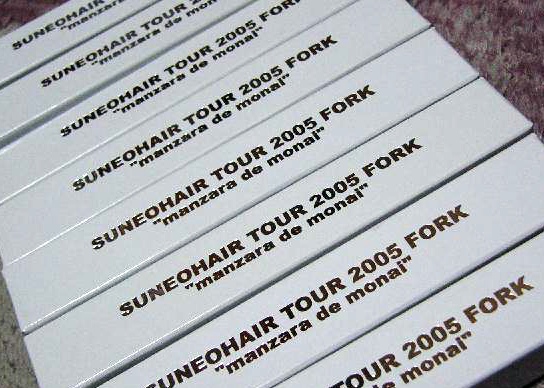 SUNEOHAIR TOUR 2005
"manzara de monai"
SUNEOHAIR TOUR 2005 FORK
"manzara de monai"
SUNEOHAIR TOUR 2005 FORK
"manzara de monai"
SUNEOHAIR TOUR 2005 FORK
"manzara de monai"
SUNEOHAIR TOUR 2005 FORK
"manzara de monai"
SUNEOHAIR TOUR 2005 FORK
"manzara de monai"
SUNEOHAIR TOUR 2005 FORK
"manzara de monai"
TOUR 2005 FORK
de monai"